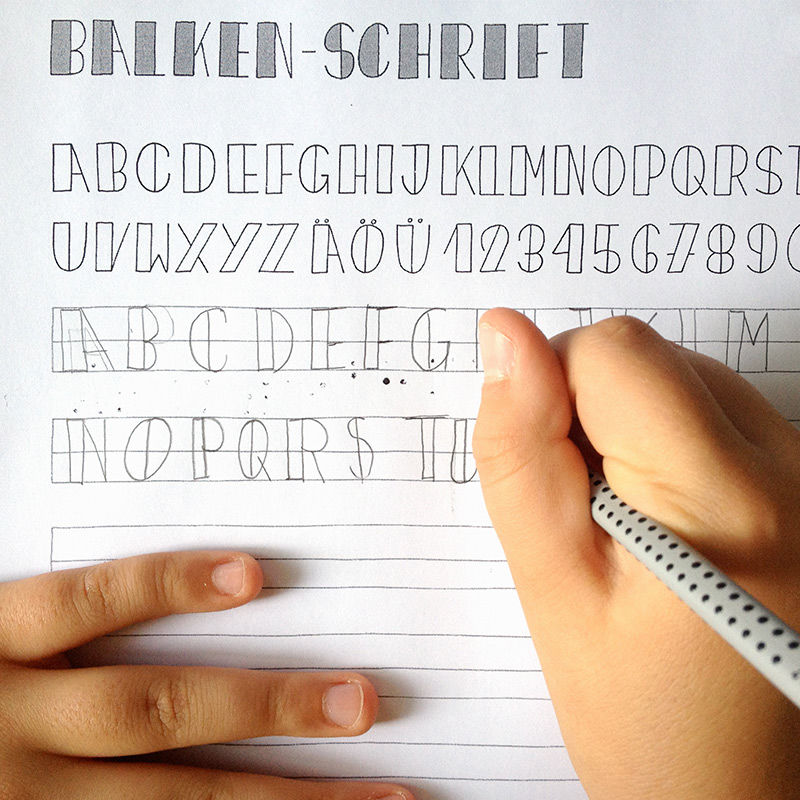 BALKEN-SCHRIFT
ABCDEFGHIJKLMNOPQRST
UVWXYZÄÖÜ1234567890
ABCDEFG M
NOPQRS TU